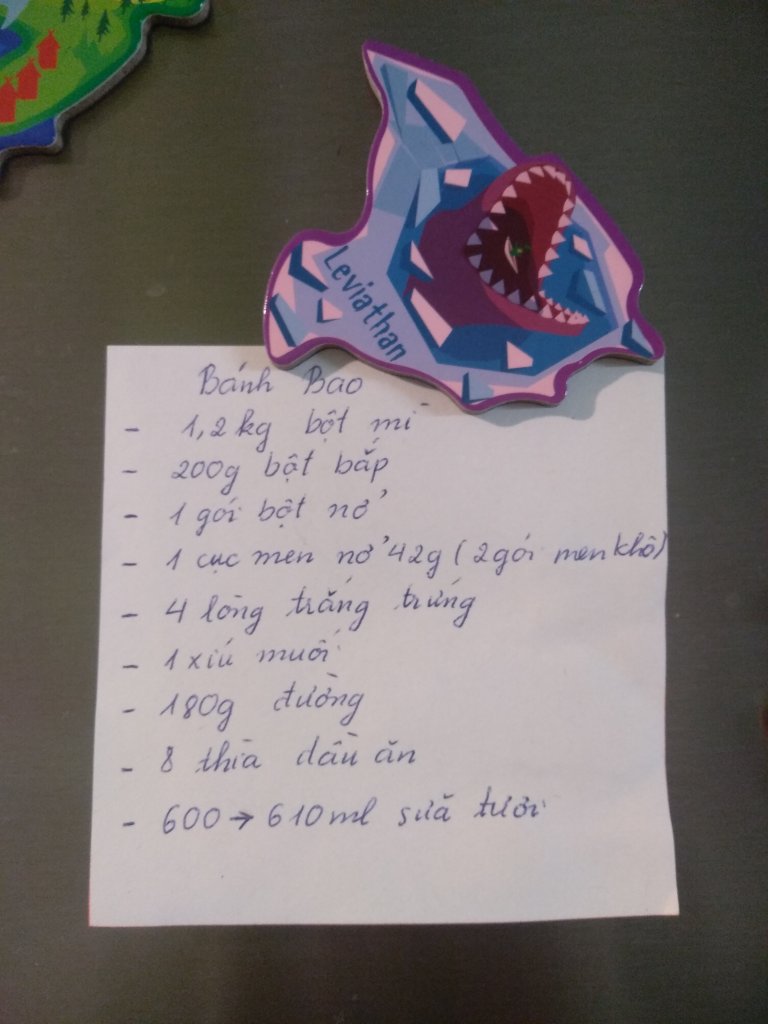 Leviathan
Bánh Bao
- 1,2 kg bột mì
- 200g bột bắp
- 1 gói bột nở
- 1 cục men nở 42g (2 gói men khô)
- 4 lòng trắng trứng
- 1 xíu muối
- 180g đường
- 8 thìa dầu ăn
- 600 → 610 ml sữa tươi